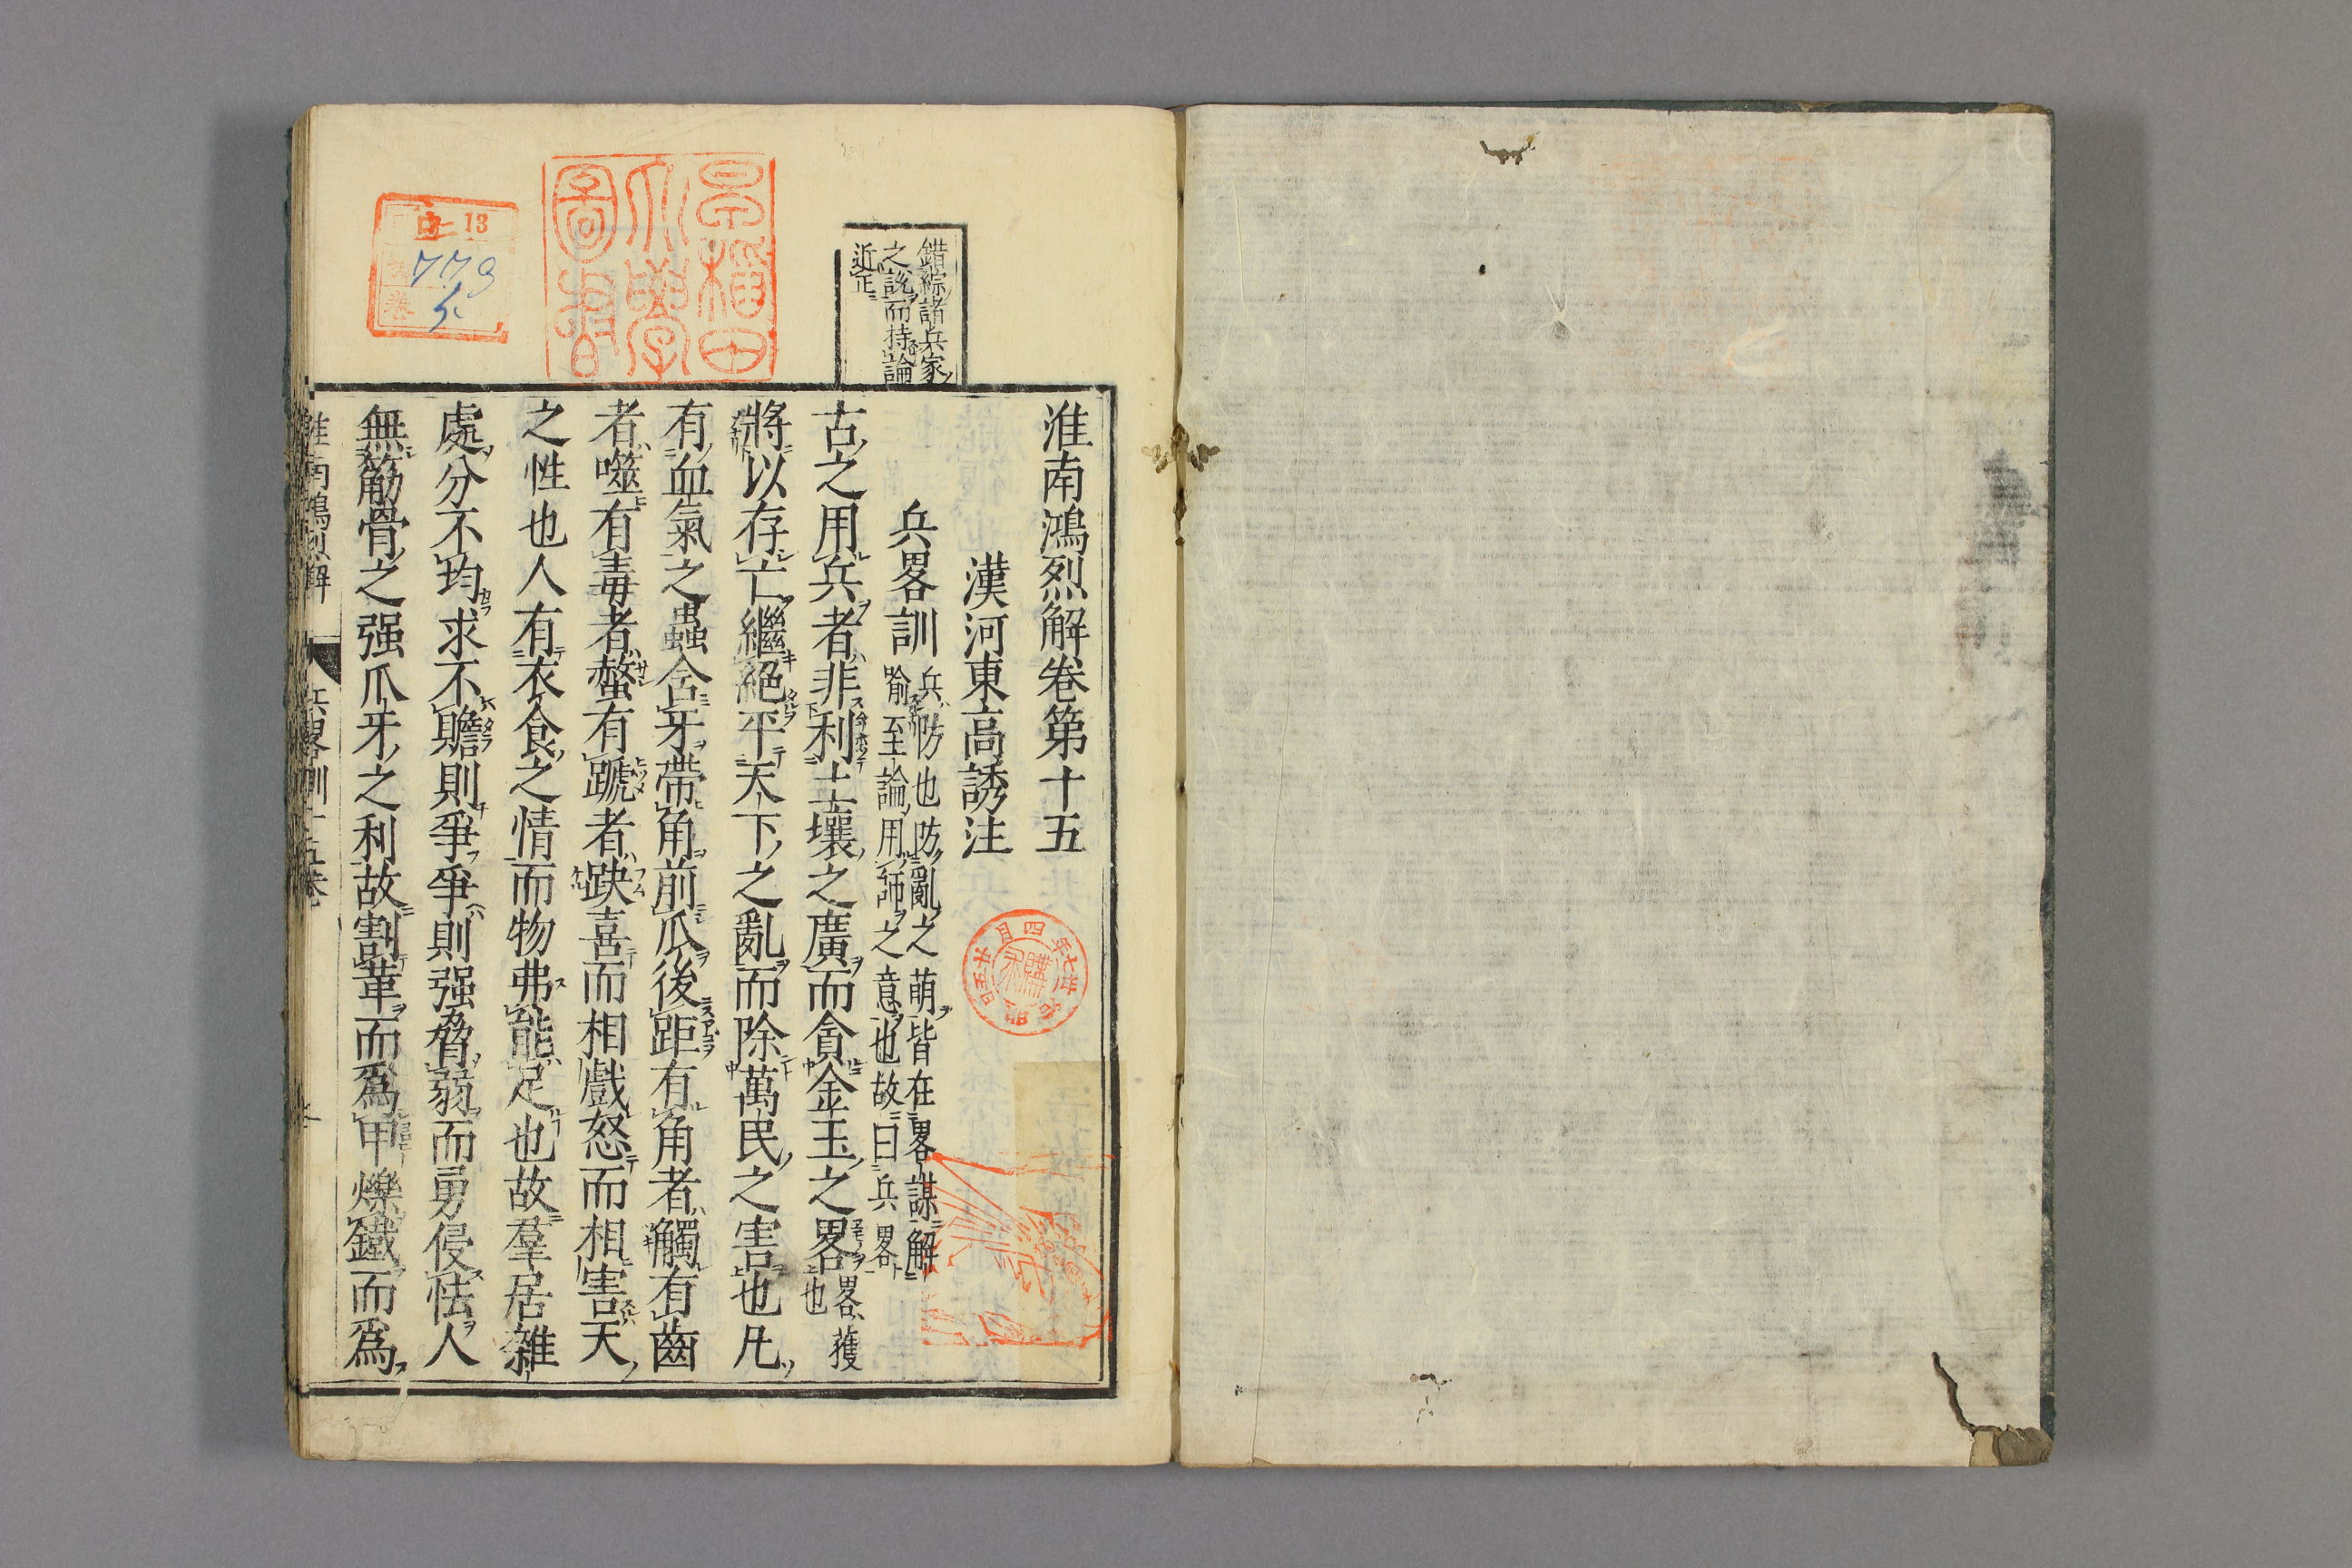 淮南鴻烈解卷第十五
漢河東高誘注
兵畧訓 兵防也防亂之萌皆在畧謀解
喻至論用師之意也故曰兵畧
古之用兵者非利土壤之廣而貪金玉之畧 畧獲
也
將以存亡繼絕平天下之亂而除萬民之害也凡
有血氣之蟲含牙帶角前爪後距有角者觸有齒
者噬有毒者螫有蹏者趹喜而相戲怒而相害天
之性也人有衣食之情而物弗能足也故羣居雜
處分不均求不贍則爭爭則强脅弱而勇侵怯人
無筋骨之强爪牙之利故割革而爲甲爍鐵而爲
錯綜諸兵家
之說而持論
近正
淮南鴻烈解 兵畧訓十五卷
早稻田
大學
圖書
13
779
5
卷
明治卅七年四月廿五日
購求